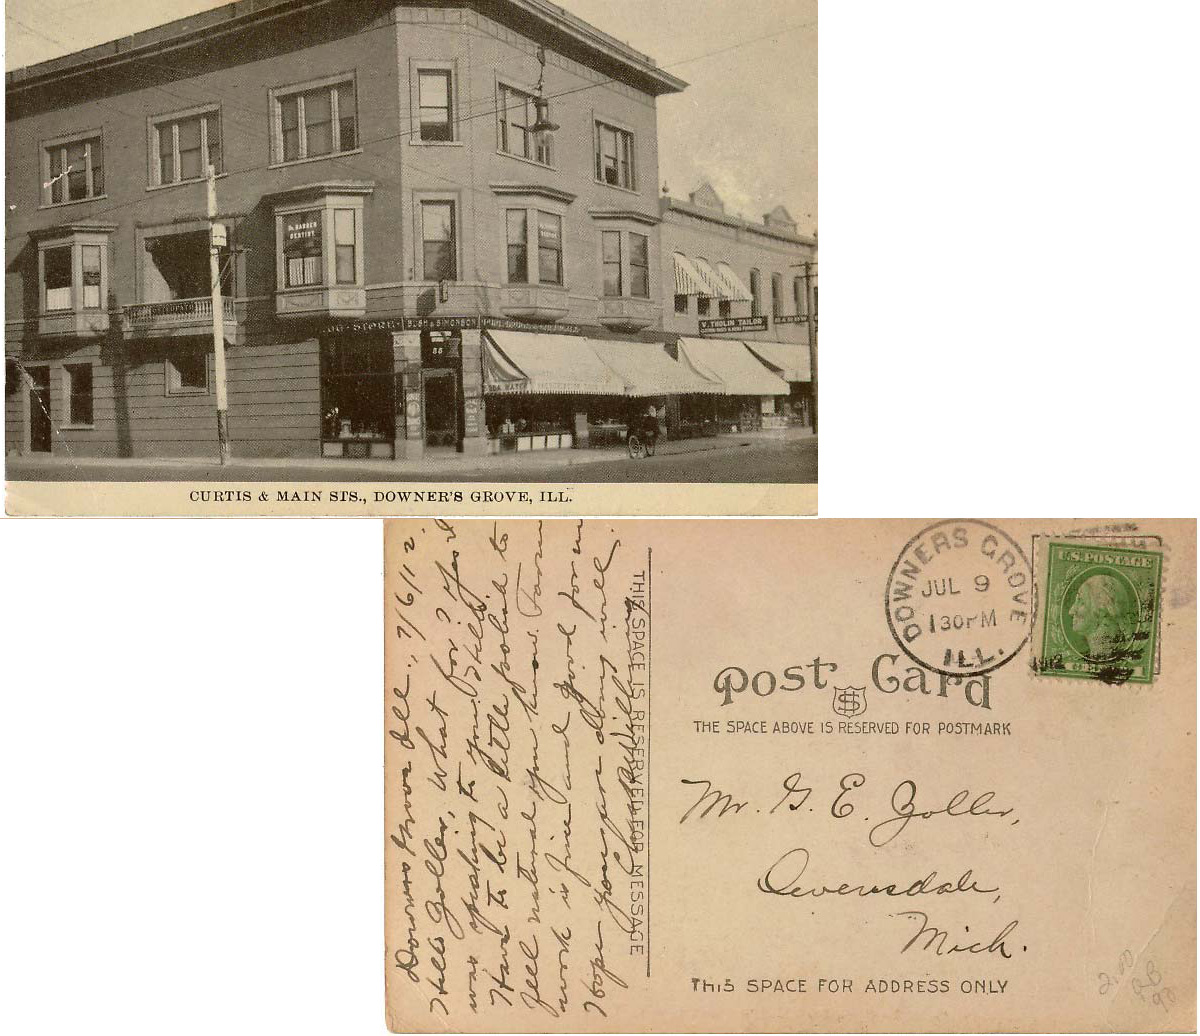 DR. BARBER
DENTIST.
BUSH & SIMONSON
88
V. THOLIN TAILOR
CURTIS & MAIN STS., DOWNER'S GROVE, ILL.
Downers Grove Ill., 7/6/12.
Hello Zoller, What for? Yes I
was speaking to you. Hello.
Have to be a little polite to
feel natural you know. Farm
work is fine and good for me
Hope you are doing well
Chas.
THIS SPACE IS RESERVED FOR MESSAGE
DOWNERS GROVE
JUL 9
130PM
1912
ILL.
U.S. POSTAGE
1
Post Card
THE SPACE ABOVE IS RESERVED FOR POSTMARK
Mr. G. E. Zoller,
Levensdale,
Mich.
THIS SPACE FOR ADDRESS ONLY
2.00